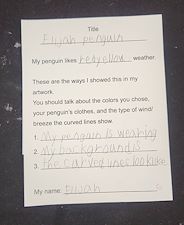 Title
Elijah penguin
My penguin likes redyellow weather.
These are the ways I showed this in my
artwork.
You should talk about the colors you chose,
your penguin's clothes, and the type of wind/
breeze the curved lines show.
1. My penguin is wearing
2. My background is
3. the curved lines look like
My name: Elijah